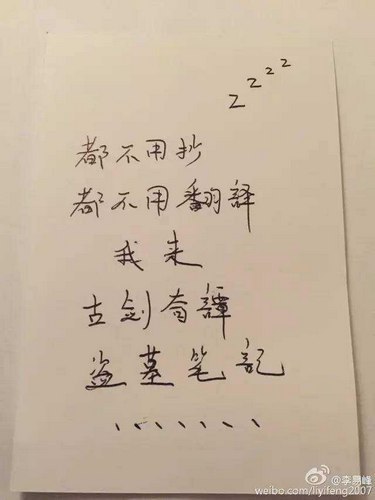 zzzz
都不用抄
都不用翻譯
我来
古剑奇譚
盗墓笔記
、、、、、、、
@李易峰
weibo.com/liyifeng2007